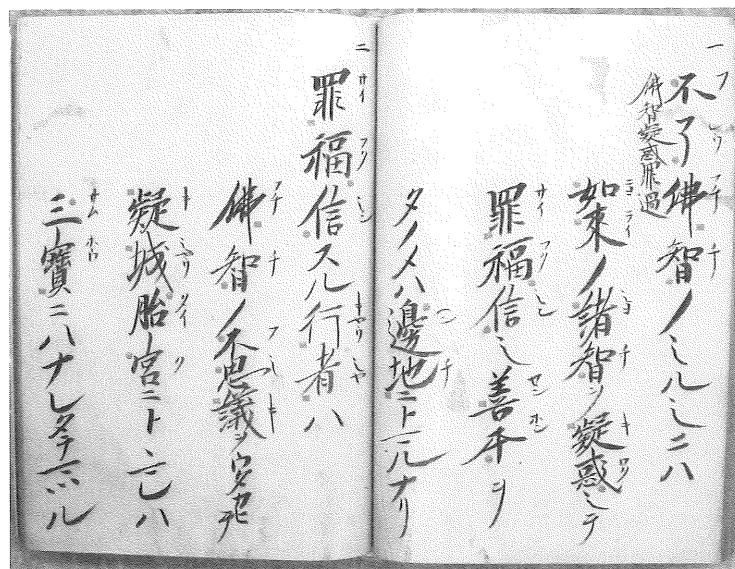 一
不了佛智ノシルシニハ
佛智疑惑罪過
如來ノ諸智ヲ疑惑シテ
罪福信シ善本ヲ
タノメハ邊地ニトマルナリ
二
罪福信スル行者ハ
佛智ノ不思議ヲウタカヒテ
疑城胎宮ニトヽマレハ
三寳ニハナレタテマツル